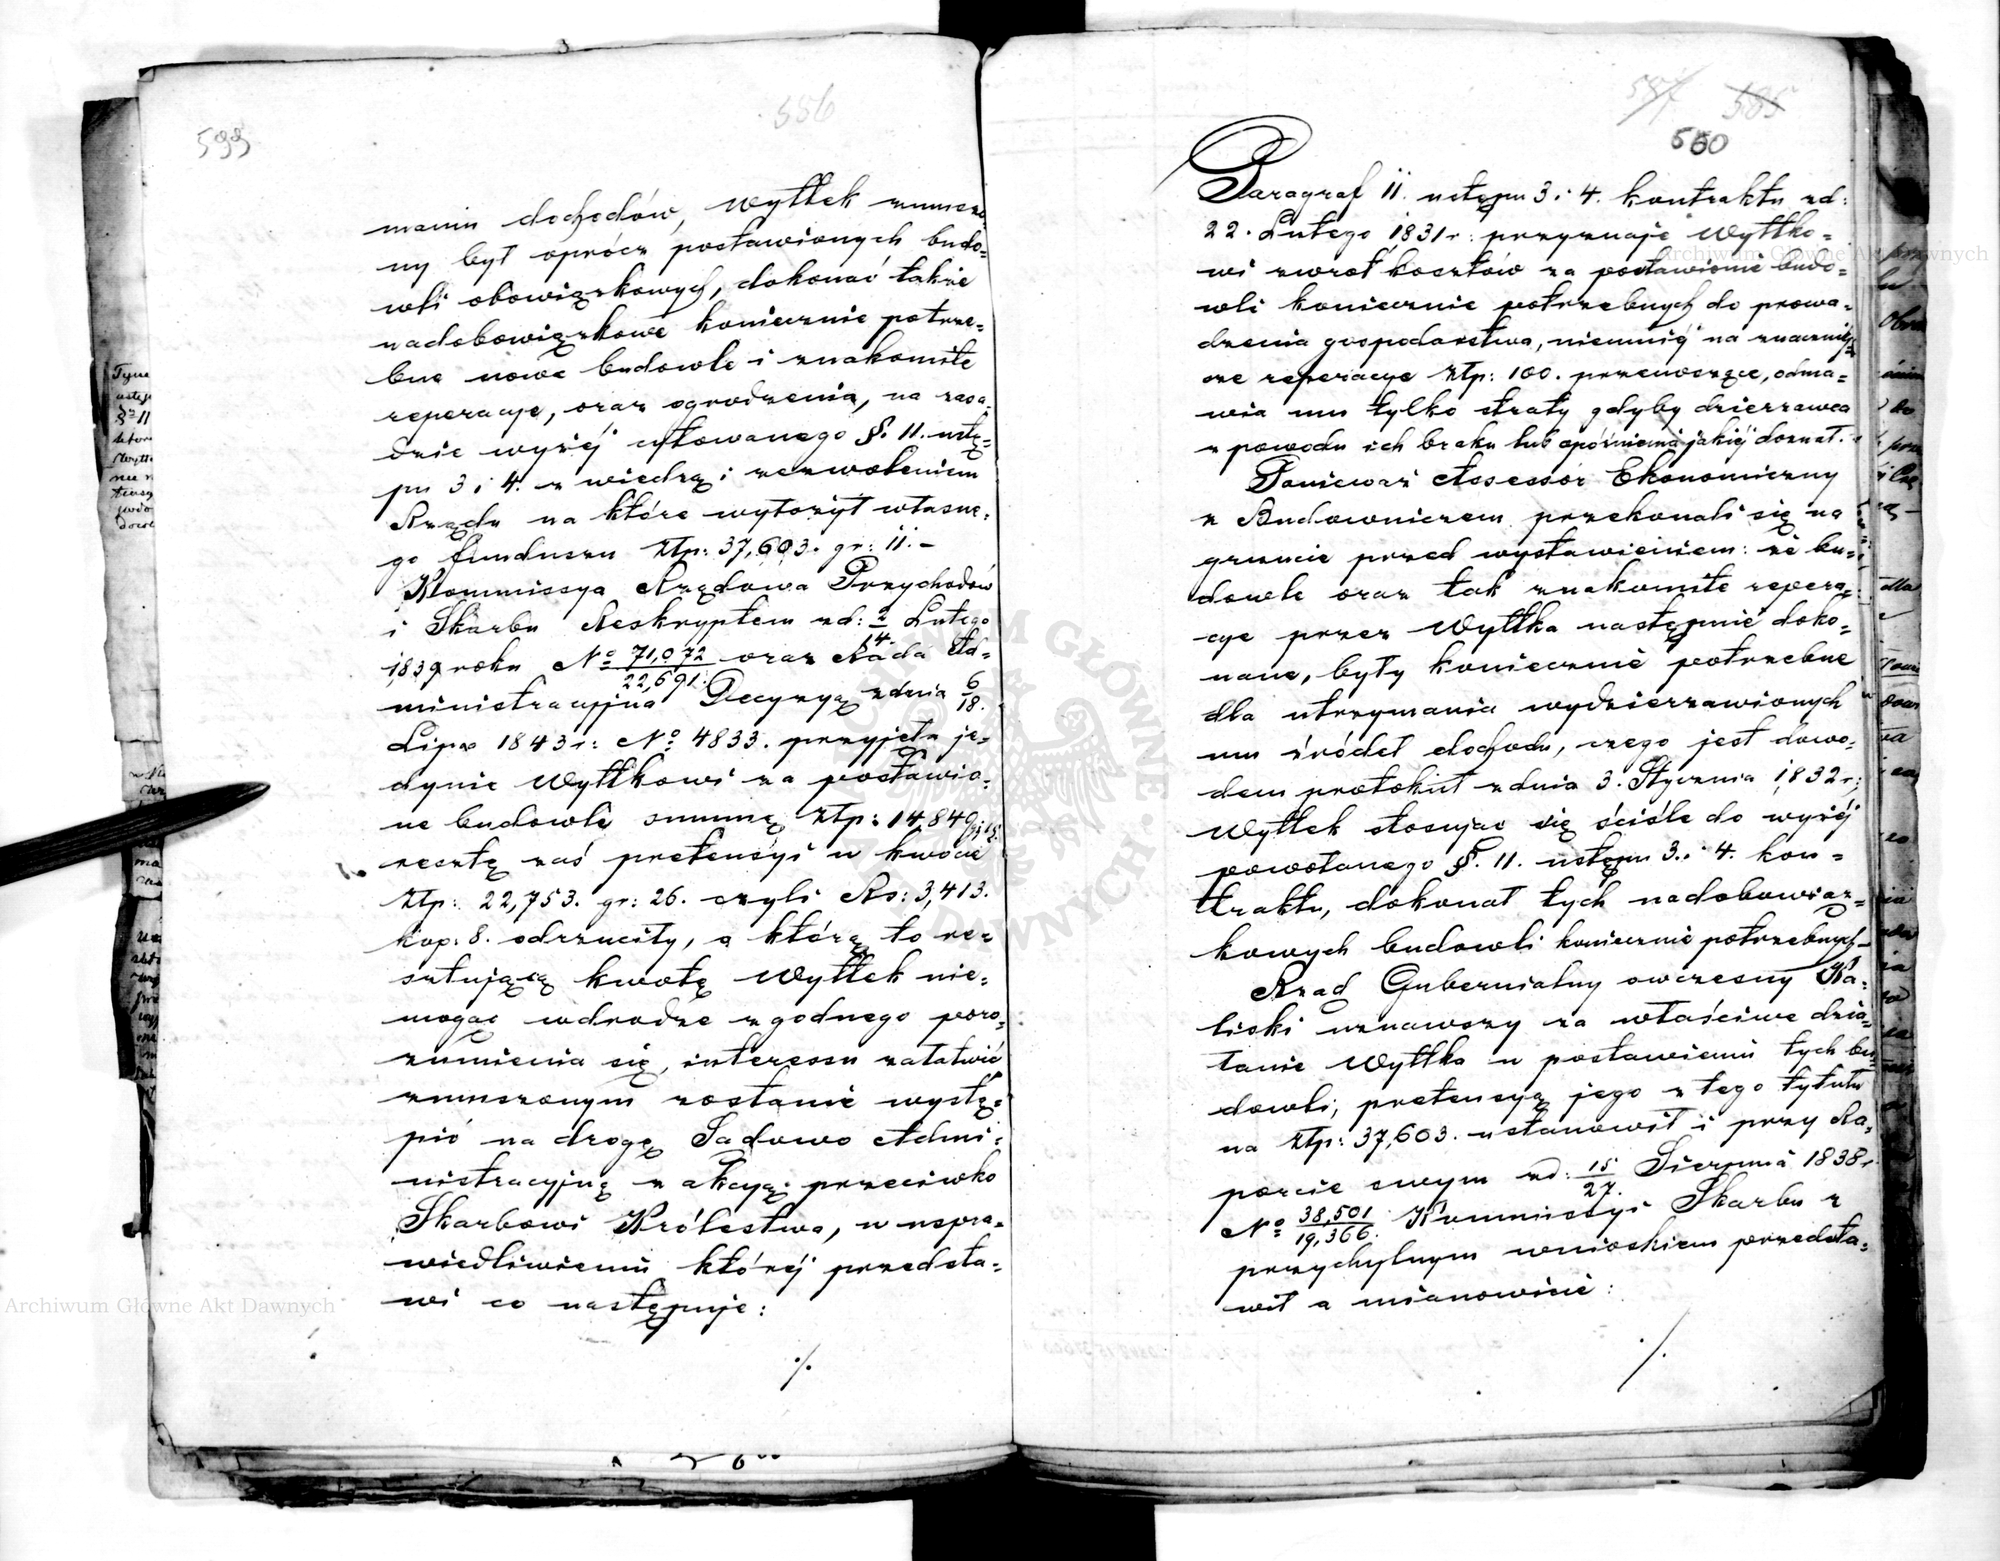 599
556
maniu dochodów, Wyttek zmuszo
ny był oprócz postawionych budo=
wli obowiązkowych, dokonać także
nadobowiązkowe koniecznie potrze=
bne nowe budowle i znakomite
reperacye, oraz ogrodzenia, na zasa=
dzie wyżéj cytowanego §. 11. ustę=
pu 3 i 4. z wiedzą i zezwoleniem
Rządu na które wyłożył własne=
go funduszu Złp: 37,603. gr: 11.–
Kommissya Rządowa Przychodów
i Skarbu Reskryptem zd: 2/14. Lutego
1839 roku No 71,072/22,691. oraz Rada Ad=
ministracyjna Decyzyą z dnia 6/18.
Lipca 1843 r: No 4833. przyjęła je=
dynie Wyttkowi za postawio=
ne budowle summę Złp: 14,849/gr 15.
resztę zaś pretensyi w kwocie
Złp: 22,753. gr: 26. czyli Rs: 3,413.
kop: 8. odrzuciły, o którą to re=
sztującą kwotę Wyttek nie=
mogąc w drodze zgodnego poro=
zumienia się, interessu załatwić
zmuszonym zostanie wystą=
pić na drogę Sądowo Admi=
nistracyjną z akcyą przeciwko
Skarbowi Królestwa, w uspra=
wiedliwieniu któréj przedsta=
wi co następuje:
./.
587 585
560
Paragraf 11. ustępu 3 i 4. kontraktu zd:
22. Lutego 1831 r: przyznaje Wyttko=
wi zwrot kosztów za postawienie budo=
wli koniecznie potrzebnych do prowa=
dzenia gospodarstwa, niemniéj na znaczniéj=
sze reperacye Złp: 100. przenoszące, odma=
wia mu tylko straty gdyby dzierzawca
z powodu ich braku lub opóźnienia jakiéj doznał.
Ponieważ Assessor Ekonomiczny
z Budowniczem przekonali się na
gruncie przed wystawieniem: że bu=
dowle oraz tak znakomite repera=
cye przez Wyttka następnie doko=
nane, były koniecznie potrzebne
dla utrzymania wydzierzawionych
mu źródeł dochodu, czego jest dowo=
dem protokół z dnia 3. Stycznia 1832 r:
Wyttek stosując się ściśle do wyżéj
powołanego §. 11. ustępu 3. i 4. kon=
traktu, dokonał tych nadobowiąz=
kowych budowli koniecznie potrzebnych–
Rząd Gubernialny owczesny Ka=
liski uznawszy za właściwe dzia=
łanie Wyttka w postawieniu tych bu=
dowli, pretensyą jego z tego tytułu
na Złp: 37,603. ustanowił i przy Ra=
porcie swym zd: 15/27. Sierpnia 1838 r.
No 38,501/19,366. Kommissyi Skarbu z
przychylnym wnioskiem przedsta=
wił a mianowicie:
./.
Archiwum Główne Akt Dawnych
Archiwum Główne Akt Dawnych
ARCHIWUM GŁÓWNE AKT DAWNYCH